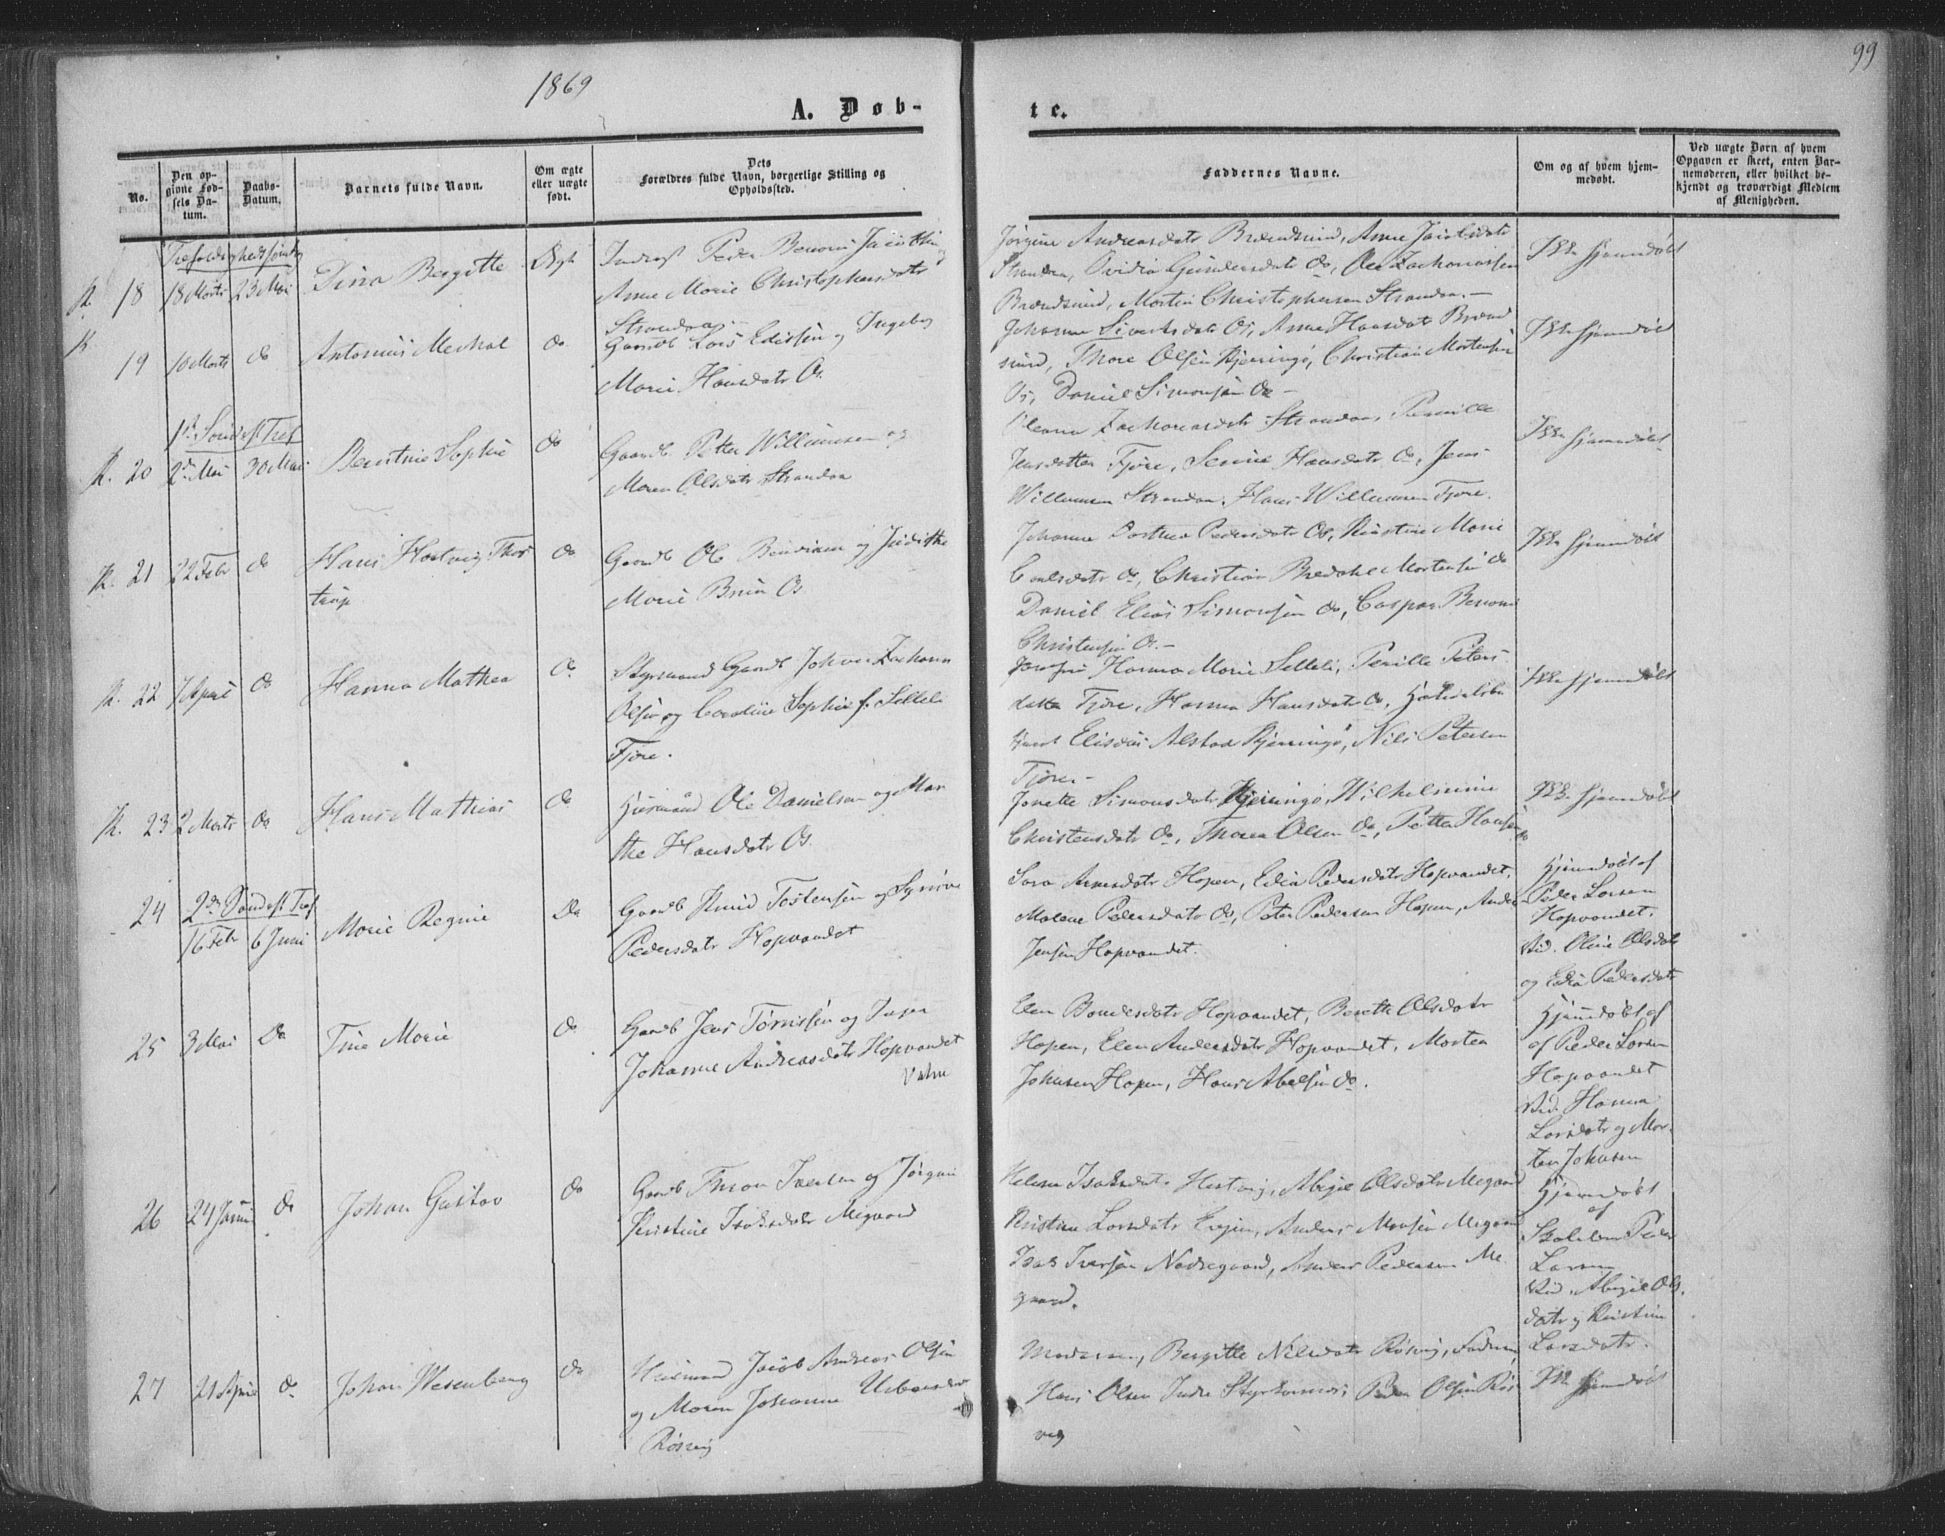 1869
99
A. Døb-
te.
No.
Den op-
givne Fød-
sels Da-
tum.
Daabs-
Datum.
Barnets fulde Navn.
Om ægte
eller uægte
født.
Dets
Forældres fulde Navn, borgerlige Stilling og
Opholdssted.
Faddernes Navne.
Om og af hvem hjem-
medøbt.
Ved uægte Børn af hvem
Opgaven er skeet, enten Bar-
nemoderen, eller hvilket be-
kjendt og troværdigt Medlem
af Menigheden.
18
18 Marts
23 Mai
Dina Bergitte
Ægt
Peder Benoni
Anne Marie Christophersdatr
Strandaa
Jørgine Andreasdatr Brændsund, Anne Jacobsdatr
Strandaa, Ovidia Gundersdatr do, Ole Zachariassen
Brændsund, Morten Christophersen Strandaa.
Ikke hjemdøbt
19
10 Marts
do
Antonius Mechal
do
Gaardb Lars Edissen og Ingeborg
Marie Hansdatr Os.
Johanne Sivertsdatr Os, Anne Hansdatr Brænd
sund, Thore Olsen Kjerringø, Christian Mortensen
Os, Daniel Simonsen do
Ikke hjemdøbt
20
30 Mai
Berntine Sophie
do
Gaardb Petter Willumsen og
Maren Olsdatr Strandaa
Zachariasdatr Strandaa, Pernille
Jensdatter Fjøre, Hansdatr do, Jens
Willumsen Strandaa, Hans Willumsen Fjøre.
Ikke hjemdøbt
21
22 Febr
do
Hans Hartvig Thos
trup
do
Gaardb Ole Bendixen og Judithe
Marie Bruun Os
Johanne Pedersdatr Os, Kristine Marie
Carlsdatr do, Christian Bredahl Mortensen do
Daniel Elias Simonsen do, Caspar Benoni
Christensen Os.
Ikke hjemdøbt
22
7 April
do
Hanna Mathea
do
Styrmand Gaardb Johan Zacharia
Olsen og Caroline Sophie f. Selleli
Fjøre.
Jomfru Hanna Marie Selleli, Pernille Peters
datter Fjøre, Hanna Hansdatr do,
Elisæus Alstad Kjerringø, Nils Petersen
Fjøre
Ikke hjemdøbt
23
2 Marts
do
Hans Mathias
do
Husmand Ole Danielsen og Mar
the Hansdatr Os.
Jonette Simonsdatr Kjerringø, Wilhelmine
Christensdatr do, Thomas Olsen do, Petter Hansen do
Ikke hjemdøbt
24
16 Febr
6 Juni
Marie Regine
do
Gaardb Knud Tostensen og Synnøve
Pedersdatr Hopvandet
Sara Arnesdatr Hopen, Edia Pedersdatr Hopvandet,
Malene Pedersdatr do, Peter Pedersen Hopen, Anders
Jensen Hopvandet.
Hjemdøbt af
Peder Larsen
Hopvandet.
Vid. Oline Olsdatr
og Edia Pedersdatr
25
3 Mai
do
Tine Marie
do
Gaardb Jens Tørrissen og Inger
Johanne Andreasdatr Hopvandet
Elen Hopvandet, Berethe Olsdatr
Hopen, Elen Andersdatr Hopvandet, Morten
Johnsen Hopen, Hans Abelsen do.
Hjemdøbt af
af Peder Larsen
Hopvandet
Vid. Hanna
Larsdatr og Mor-
ten Johnsen
26
24 Januar
do
Johan Gustav
do
Gaardb Thson Iversen og Jørgine
Kristine Isaksdatr Megaard
Helena Isaksdatr Hestvig, Abigael Olsdatr Megaard
Kristine Larsdatr Evjen, Anders Monsen Megaard
Isak Iversen Nedregaard, Anders Pedersen Me-
gaard.
Hjemdøbt
af
Peder
Larsen
Vid. Abigael Ols-
datr og Kristine
Larsdatr.
27
21 April
do
Johan Wesenberg
do
Husmand Jacob Andreas Olsen
og Maren Johanne
Røsvig
Bergitte Nilsdatr Røsvig,
Hans Olsen Indre Peder Olsen Røs
vig
Ikke hjemdøbt